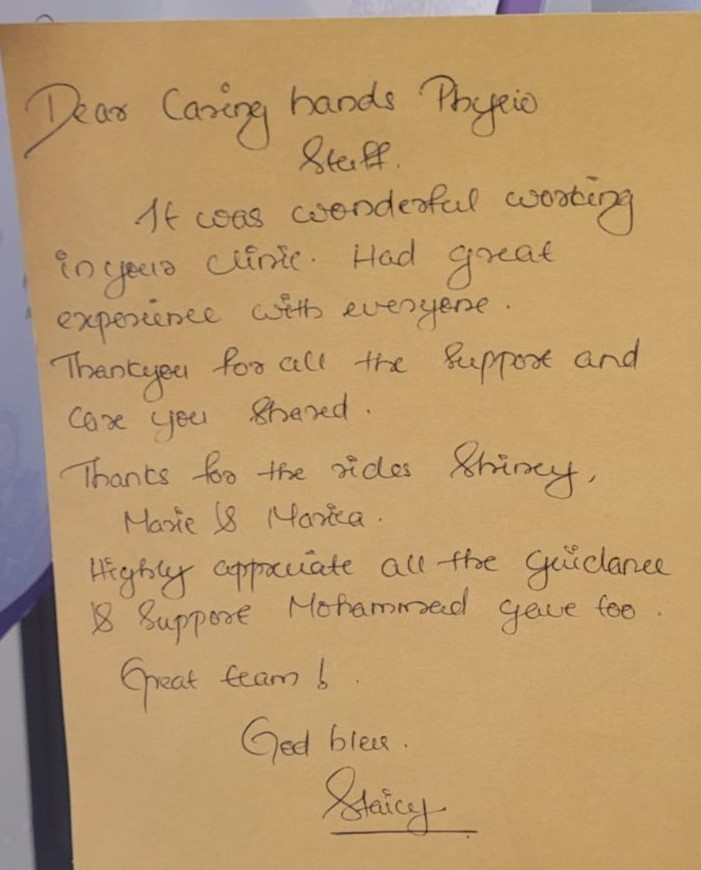 Dear Caring hands Physio
Staff.
It was wonderful working
in your clinic. Had great
experience with everyone.
Thankyou for all the support and
care you shared.
Thanks for the rides Shiney,
Marie & Marica.
Highly appreciate all the guidance
& support Mohammed gave too.
Great team!
God bless.
Staicy